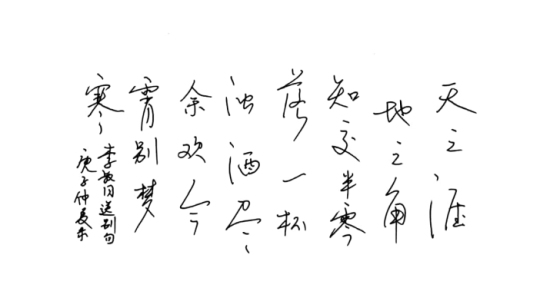 天之涯
地之角
知交半零
落一杯
浊酒尽
余欢今
宵别梦
寒
李叔同送别句
庚子仲夏